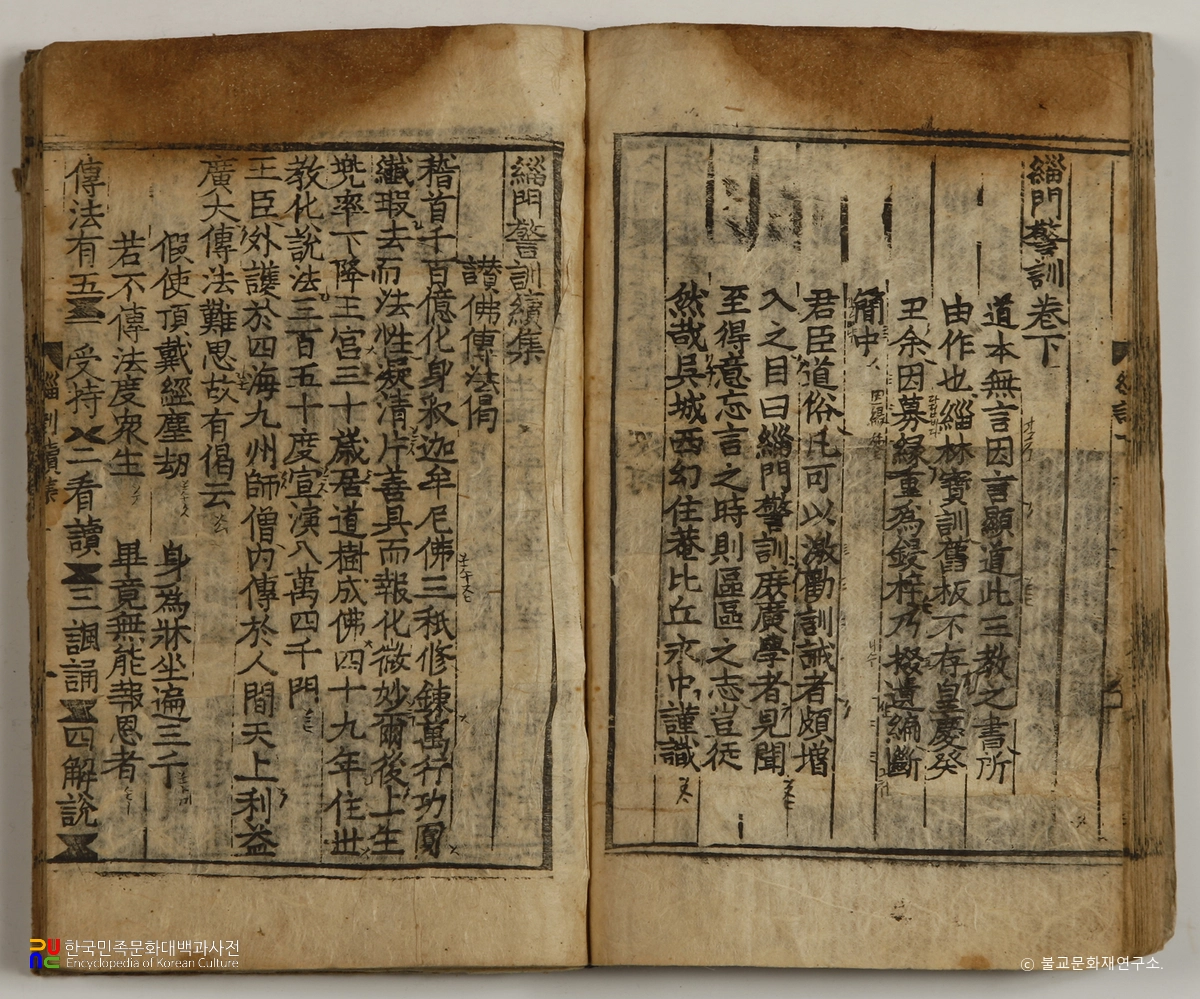 緇門警訓卷下
道本無言因言顯道此三教之書所
由作也緇林寶訓舊板不存皇慶癸
丑余因募緣重為鋟梓乃掇遺編斷
簡中
君臣道俗凡可以激勸訓誡者頗增
入之目曰緇門警訓庶廣學者見聞
至得意忘言之時則區區之志豈徒
然哉吳城西幻住菴比丘永中謹識
緇門警訓續集
讃佛傳法偈
稽首千百億化身釈迦牟尼佛三秖修鍊萬行功圓
纖瑕去而法性凝清片善具而報化微妙爾後上生
兠率下降王宮三十歲居道樹成佛四十九年住世
教化說法三百五十度宣演八萬四千門
王臣外護於四海九州師僧內傳於人間天上利益
廣大傳法難思故有偈云
假使頂戴經塵劫 身為牀坐遍三千
若不傳法度衆生 畢竟無能報恩者
傳法有五 一受持 二看讀 三諷誦 四解說
한국민족문화대백과사전
Encyclopedia of Korean Culture
ⓒ 불교문화재연구소.